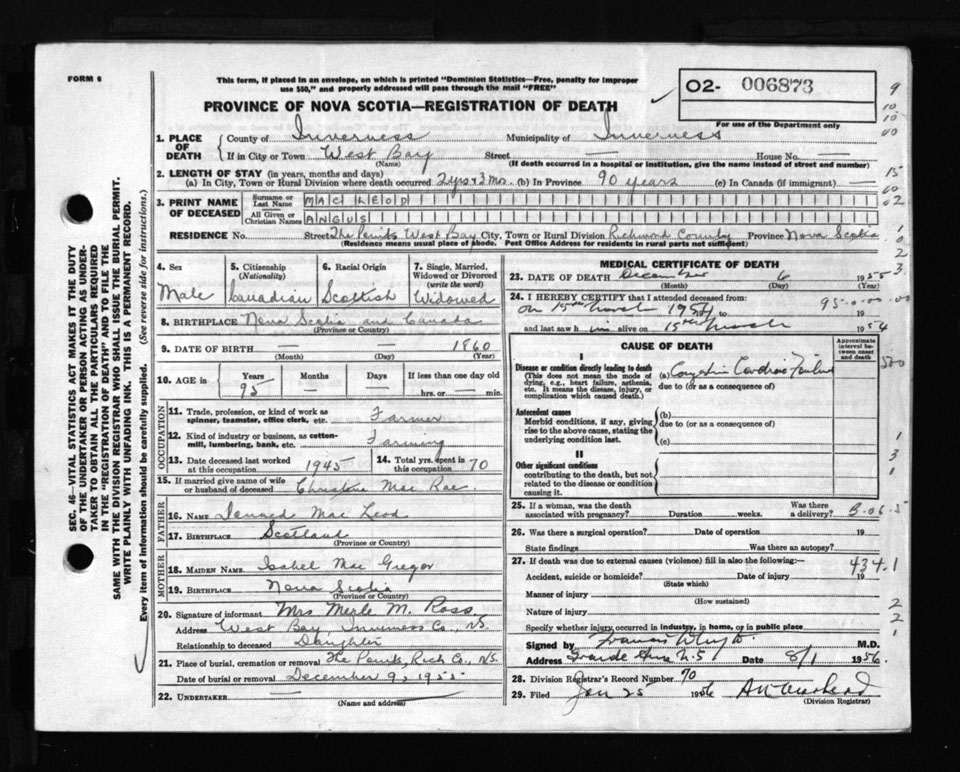 FORM 6
This form, if placed in an envelope, on which is printed "Dominion Statistics—Free, penalty for improper
use $50," and properly addressed will pass through the mail "FREE"
PROVINCE OF NOVA SCOTIA—REGISTRATION OF DEATH
02- 006873
For use of the Department only
1. PLACE OF DEATH
County of Inverness Municipality of Inverness
If in City or Town West Bay Street — House No. —
(Name) (If death occurred in a hospital or institution, give the name instead of street and number)
2. LENGTH OF STAY (in years, months and days)
(a) In City, Town or Rural Division where death occurred 2 yrs + 3 mos. (b) In Province 90 years (c) In Canada (if immigrant) —
3. PRINT NAME OF DECEASED
Surname or Last Name MAC LEOD
All Given or Christian Names ANGUS
RESIDENCE No. Street The Points West Bay City, Town or Rural Division Richmond County Province Nova Scotia
(Residence means usual place of abode. Post Office Address for residents in rural parts not sufficient)
4. Sex Male
5. Citizenship (Nationality) Canadian
6. Racial Origin Scottish
7. Single, Married, Widowed or Divorced (write the word) Widowed
8. BIRTHPLACE Nova Scotia and Canada
(Province or Country)
9. DATE OF BIRTH — — 1860
(Month) (Day) (Year)
10. AGE in Years 95 Months — Days — If less than one day old hrs. or — min.
OCCUPATION
11. Trade, profession, or kind of work as spinner, teamster, office clerk, etc. Farmer
12. Kind of industry or business, as cotton-mill, lumbering, bank, etc. Farming
13. Date deceased last worked at this occupation 1945
14. Total yrs. spent in this occupation 70
15. If married give name of wife or husband of deceased Christine Mac Rae
FATHER
16. NAME Mac Leod
17. BIRTHPLACE Scotland
(Province or Country)
MOTHER
18. MAIDEN NAME Isabel Mac Gregor
19. BIRTHPLACE Nova Scotia
(Province or Country)
20. Signature of informant Mrs Merle M. Ross
Address West Bay Inverness Co., N.S.
Relationship to deceased Daughter
21. Place of burial, cremation or removal The Points, Rich Co., N.S.
Date of burial or removal December 9, 1955
22. UNDERTAKER —
(Name and address)
MEDICAL CERTIFICATE OF DEATH
23. DATE OF DEATH December 6 1955
(Month) (Day)
24. I HEREBY CERTIFY that I attended deceased from:
on 15th March 1954 to 19
and last saw him alive on 15th March 1954
CAUSE OF DEATH
Approximate interval between onset and death
I
Disease or condition directly leading to death
(This does not mean the mode of dying, e.g., heart failure, asthenia, etc. It means the disease, injury, or complication which caused death.)
(a) Congestive Cardiac Failure
due to (or as a consequence of)
Antecedent causes
Morbid conditions, if any, giving rise to the above cause, stating the underlying condition last.
(b)
due to (or as a consequence of)
(c)
II
Other significant conditions
contributing to the death, but not related to the disease or condition causing it.
25. If a woman, was the death associated with pregnancy? Duration weeks. Was there a delivery?
26. Was there a surgical operation? Date of operation 19
State findings Was there an autopsy?
27. If death was due to external causes (violence) fill in also the following:—
Accident, suicide or homicide? Date of injury 19
(State which)
Manner of injury
(How sustained)
Nature of injury
Specify whether injury occurred in industry, in home, or in public place
Signed by Francis M.D.
Address N.S. Date 8/1 1956.
28. Division Registrar's Record Number 70
29. Filed Jan 25 1956
(Division Registrar)
434.1
SEC. 46—VITAL STATISTICS ACT MAKES IT THE DUTY
OF THE UNDERTAKER OR PERSON ACTING AS UNDER-
TAKER TO OBTAIN ALL THE PARTICULARS REQUIRED
IN THE "REGISTRATION OF DEATH" AND TO FILE THE
SAME WITH THE DIVISION REGISTRAR WHO SHALL ISSUE THE BURIAL PERMIT.
WRITE PLAINLY WITH UNFADING INK. THIS IS A PERMANENT RECORD.
Every item of information should be carefully supplied. (See reverse side for instructions.)